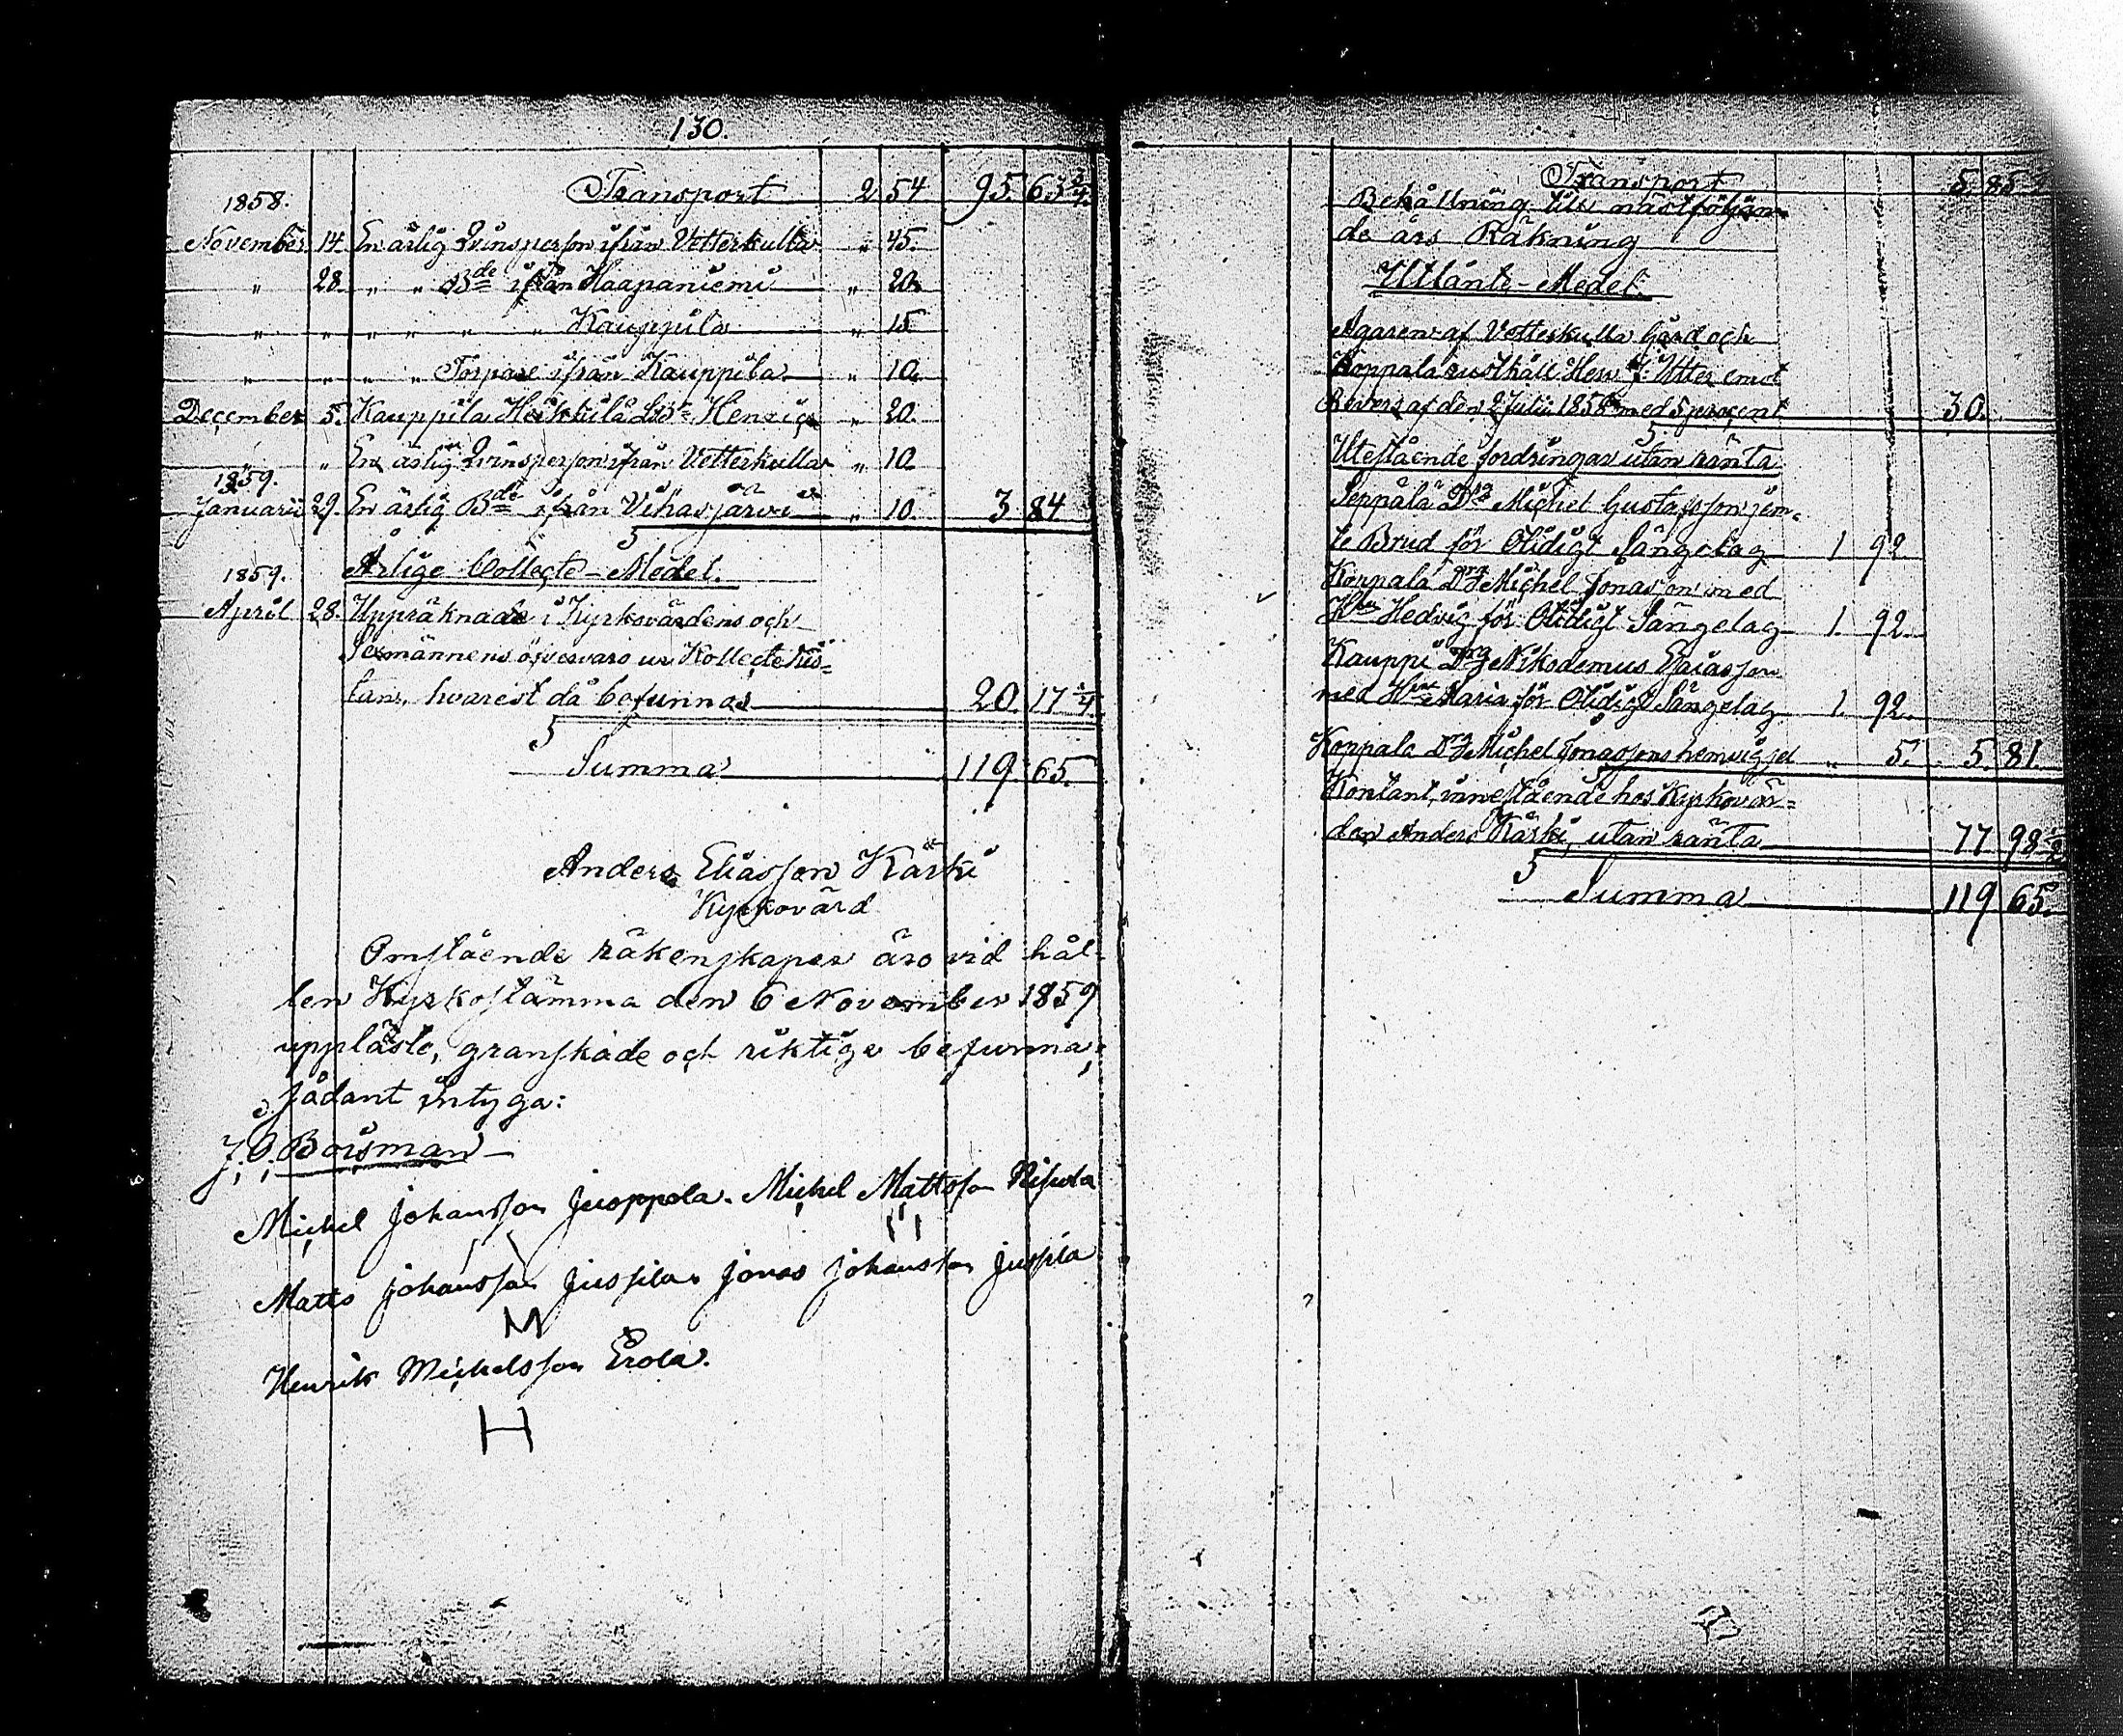 130.
Transport 2 54 95. 63 3/4.
1858.
November 14. En ärlig Qvinsperson ifrån Vetterkulla " 45.
" 28. " " Bde ifrån Haapaniemi " 20.
" " " " " " Kauppila " 15
" " " " Torpare ifrån Kauppila " 10.
December 5. Kauppila Heikkilä Henric " 20.
" En ärlig Qvinsperson ifrån Vetterkulla " 10
1859.
Januarii 29. En ärlig Bde ifrån Vihasjärvi " 10. 3. 84
Årlige Collecte-Medel.
1859.
April 28. Uppräknade i Kyrkovärdens och
Sexmännens öfvervaro ur Kollecte kis=
tan, hvarest då befunnos 20. 17 1/4.
Summa 119. 65.
Anders Eliasson Kärki
Kyrkovärd
Omstående räkenskaper äro vid hål-
len Kyrkostämma den 6 November 1859
uppläste, granskade och riktige befunna;
sådant intyga:
J. O. Boisman
Michel Johansson Juoppola. Michel Mattsson
Matts Johansson Jussila Jonas Johansson Jussila
M
Henrik Michelsson Erola.
H
Transport 5. 85
Behållning till nästföljan-
de års Räkning
Utlånte-Medel.
Ägaren af Vetterkulla Gård och
Koppala rusthåll Herr Utter emot
Revers af den 2 Julii 1858 med 5 procent 30.
Utestående fordringar utan ränta
Seppälä Michel Gustafsson jem-
te Brud för Otidigt Sängelag 1. 92
Koppala Drg Michel Jonasson med
Hu Hedvig för Otidigt Sängelag 1. 92.
Kauppi Drg Nikodemus Esaiasson
med Hu Maria för Otidigt Sängelag 1. 92.
Koppala Drg Michel Jonassons hemvigsel " 5. 5. 81.
Kontant, innestående hos Kyrkovär=
den Anders Kärki, utan ränta 77 98 1/2
Summa 119 65.